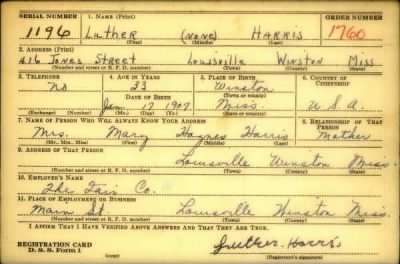 SERIAL NUMBER 1. NAME (Print) ORDER NUMBER
1196 Luther (NONE) HARRIS 1760
(First) (Middle) (Last)
2. ADDRESS (Print)
416 Jones Street Louisville Winston Miss
(Number and street or R. F. D. number) (Town) (County) (State)
3. TELEPHONE 4. AGE IN YEARS 5. PLACE OF BIRTH 6. COUNTRY OF CITIZENSHIP
No 33 Winston
DATE OF BIRTH (Town or county)
Jan 17 1907 Miss. U.S.A.
(Exchange) (Number) (Mo.) (Day) (Yr.) (State or country)
7. NAME OF PERSON WHO WILL ALWAYS KNOW YOUR ADDRESS 8. RELATIONSHIP OF THAT PERSON
Mrs. Mary Haynes Harris Mother
(Mr., Mrs., Miss) (First) (Middle) (Last)
9. ADDRESS OF THAT PERSON
Louisville Winston Miss.
(Number and street or R. F. D. number) (Town) (County) (State)
10. EMPLOYER'S NAME
The Fair Co.
11. PLACE OF EMPLOYMENT OR BUSINESS
Main St Louisville Winston Miss.
(Number and street or R. F. D. number) (Town) (County) (State)
I AFFIRM THAT I HAVE VERIFIED ABOVE ANSWERS AND THAT THEY ARE TRUE.
REGISTRATION CARD
D. S. S. Form 1 Luther Harris
(Registrant's signature)